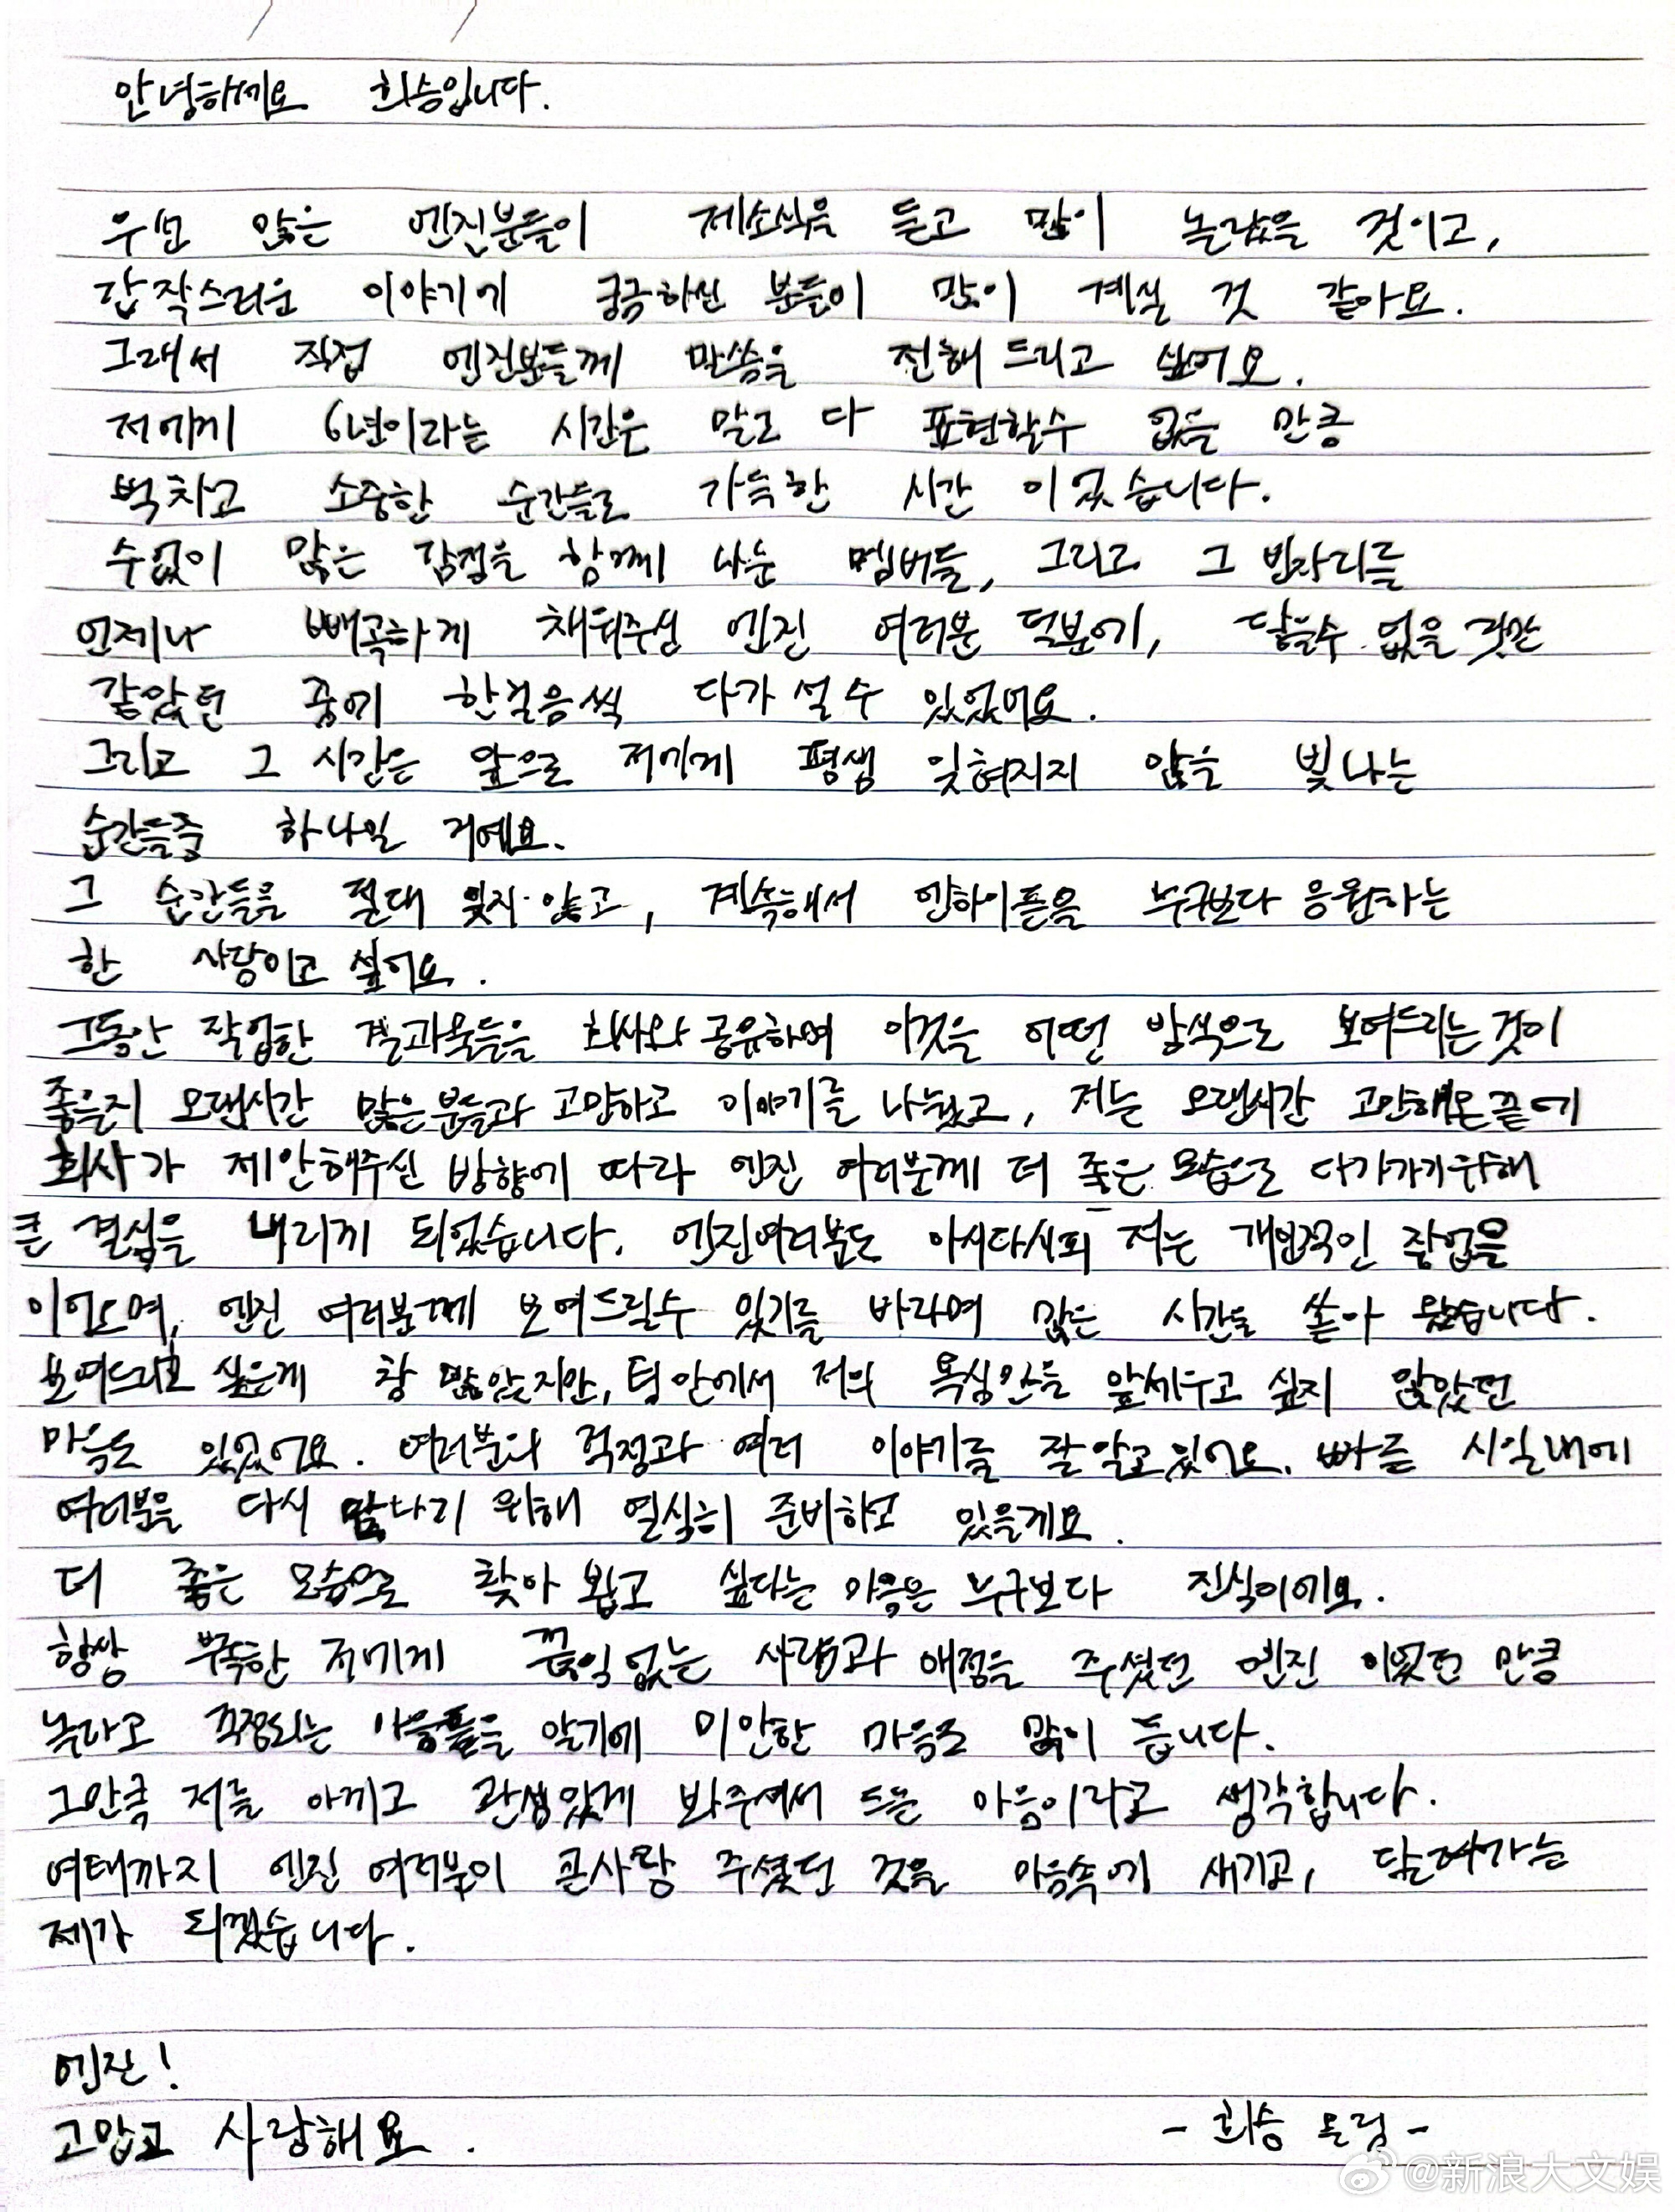 안녕하세요 희승입니다.
우선 많은 엔진분들이 제소식을 듣고 많이 놀랐을 것이고,
갑작스러운 이야기에 궁금하신 분들이 많이 계실 것 같아요.
그래서 직접 엔진분들께 말씀을 전해 드리고 싶어요.
저에게 6년이라는 시간은 말로 다 표현할수 없을 만큼
벅차고 소중한 순간들로 가득한 시간 이었습니다.
수없이 많은 감정을 함께 나눈 멤버들, 그리고 그 빈자리를
언제나 빼곡하게 채워주신 엔진 여러분 덕분에, 닿을수 없을 것만
같았던 꿈에 한걸음씩 다가 설 수 있었어요.
그리고 그 시간은 앞으로 저에게 평생 잊혀지지 않을 빛나는
순간들중 하나일 거예요.
그 순간들을 절대 잊지 않고, 계속해서 엔하이픈을 누구보다 응원하는
한 사람이고 싶어요.
그동안 작업한 결과물들을 회사와 공유하며 이것을 어떤 방식으로 보여드리는것이
좋을지 오랜시간 많은분들과 고민하고 이야기를 나눴고, 저는 오랜시간 고민해온끝에
회사가 제안해주신 방향에 따라 엔진 여러분께 더 좋은 모습으로 다가가기위해
큰 결심을 내리게 되었습니다. 엔진여러분도 아시다시피 저는 개인적인 작업을
이어오며, 엔진 여러분께 보여드릴수 있기를 바라며 많은 시간을 쏟아 왔습니다.
보여드리고 싶은게 참 많았지만, 팀 안에서 저의 욕심만을 앞세우고 싶지 않았던
마음도 있었어요. 여러분의 걱정과 여러 이야기를 잘 알고있어요. 빠른 시일내에
여러분을 다시 만나기 위해 열심히 준비하고 있을게요.
더 좋은 모습으로 찾아 뵙고 싶다는 마음은 누구보다 진심이에요.
항상 부족한 저에게 끊임없는 사랑과 애정을 주셨던 엔진 이었던 만큼
놀라고 걱정되는 마음들을 알기에 미안한 마음도 많이 듭니다.
그만큼 저를 아끼고 관심있게 봐주셔서 드는 마음이라고 생각합니다.
여태까지 엔진 여러분이 큰사랑 주셨던 것을 마음속에 새기고, 달려가는
제가 되겠습니다.
엔진!
고맙고 사랑해요.
- 희승 올림 -
@新浪大文娱